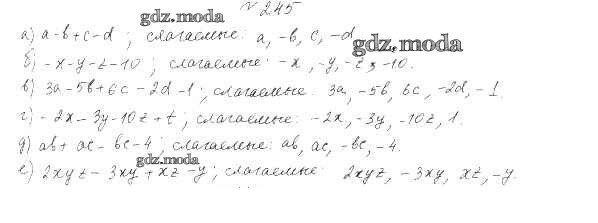 № 245
gdz.moda
а) a-b+c-d ; слагаемые: a, -b, c, -d
gdz.moda
б) -x-y-z-10 ; слагаемые: -x, -y, -z, -10.
в) 3a-5b+6c-2d-1 ; слагаемые: 3a, -5b, 6c, -2d, -1.
г) -2x-3y-10z+t ; слагаемые: -2x, -3y, -10z, 1.
д) ab+ac-bc-4 ; слагаемые: ab, ac, -bc, -4.
gdz.moda
е) 2xyz-3xy+xz-y ; слагаемые: 2xyz, -3xy, xz, -y.